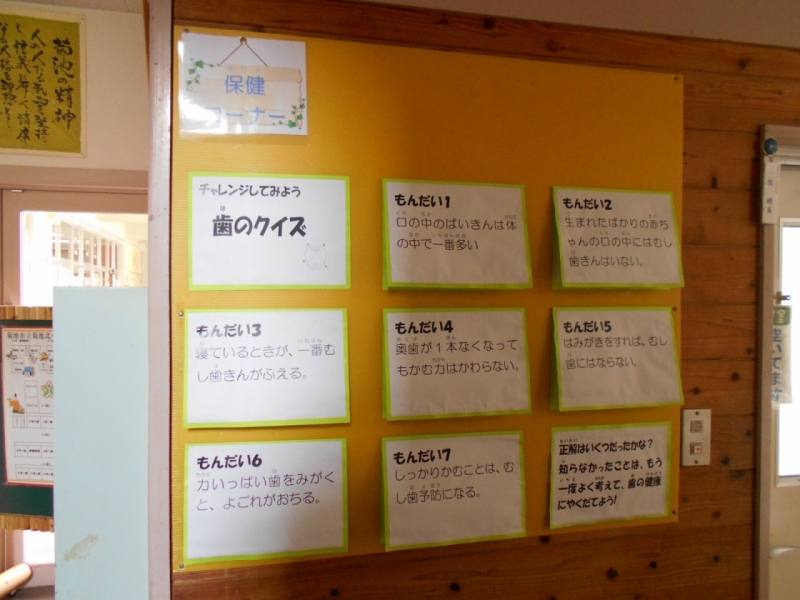 菊池の精神
保健
コーナー
チャレンジしてみよう
歯のクイズ
もんだい1
口の中のばいきんは体
の中で一番多い
もんだい2
生まれたばかりの赤ち
ゃんの口の中にはむし
歯きんはいない。
もんだい3
寝ているときが、一番む
し歯きんがふえる。
もんだい4
奥歯が1本なくなって
もかむ力はかわらない。
もんだい5
はみがきをすれば、むし
歯にはならない。
もんだい6
力いっぱい歯をみがく
と、よごれがおちる。
もんだい7
しっかりかむことは、む
し歯予防になる。
正解はいくつだったかな?
知らなかったことは、もう
一度よく考えて、歯の健康
にやくだてよう!